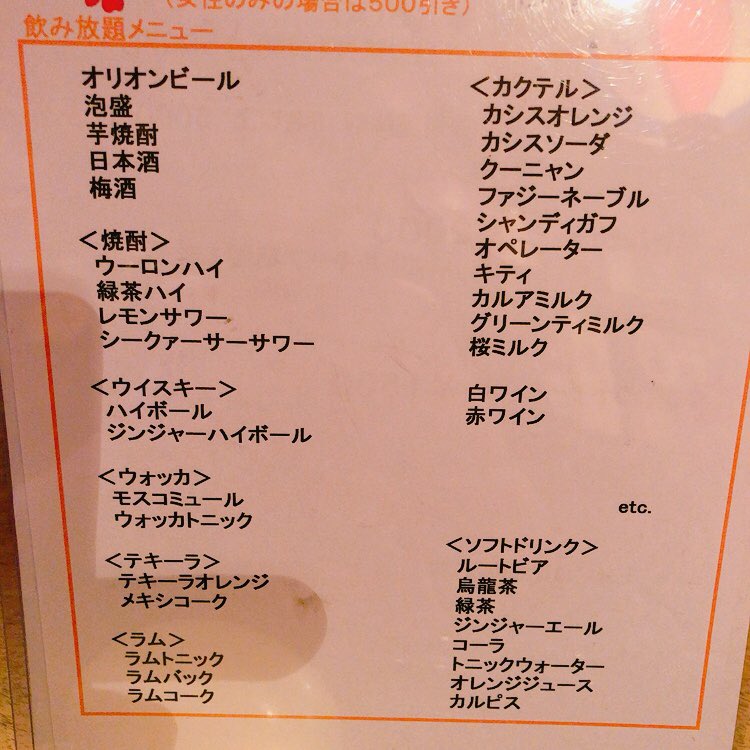 (女性のみの場合は500引き)
飲み放題メニュー
オリオンビール
泡盛
芋焼酎
日本酒
梅酒
<焼酎>
ウーロンハイ
緑茶ハイ
レモンサワー
シークァーサーサワー
<ウイスキー>
ハイボール
ジンジャーハイボール
<ウォッカ>
モスコミュール
ウォッカトニック
<テキーラ>
テキーラオレンジ
メキシコーク
<ラム>
ラムトニック
ラムバック
ラムコーク
<カクテル>
カシスオレンジ
カシスソーダ
クーニャン
ファジーネーブル
シャンディガフ
オペレーター
キティ
カルアミルク
グリーンティミルク
桜ミルク
白ワイン
赤ワイン
etc.
<ソフトドリンク>
ルートビア
烏龍茶
緑茶
ジンジャーエール
コーラ
トニックウォーター
オレンジジュース
カルピス